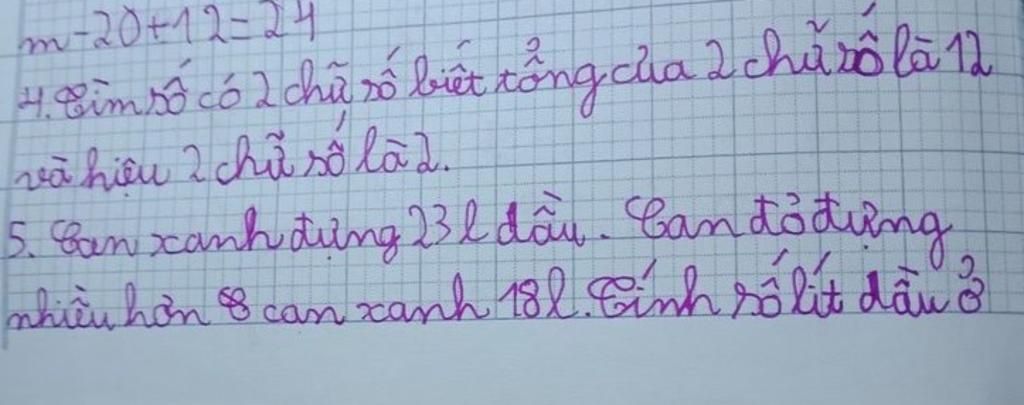 m - 20 + 12 = 24
4. Tìm số có 2 chữ số biết tổng của 2 chữ số là 12
và hiệu 2 chữ số là 2.
5. Can xanh đựng 23 l dầu. Can đỏ đựng
nhiều hơn can xanh 18 l. Tính số lít dầu ở